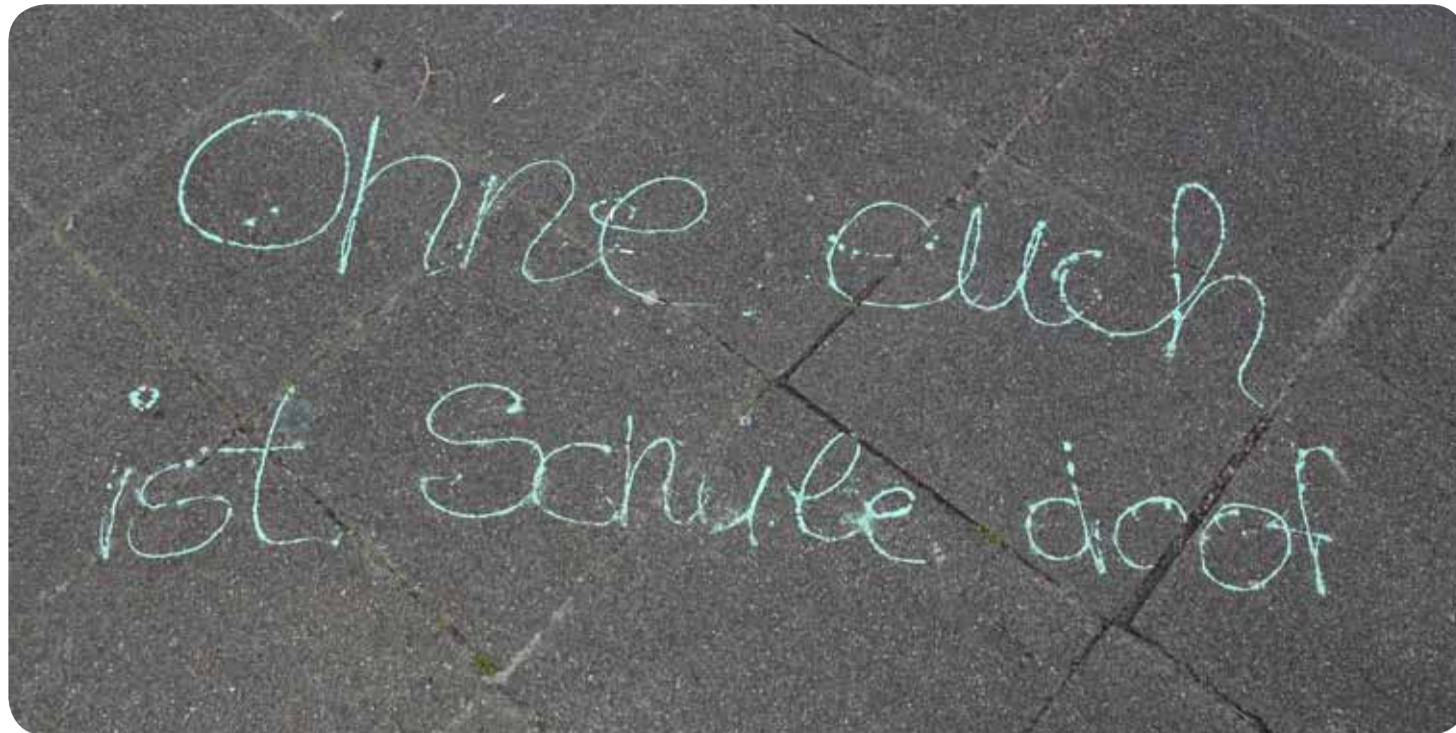 Ohne euch
ist Schule doof